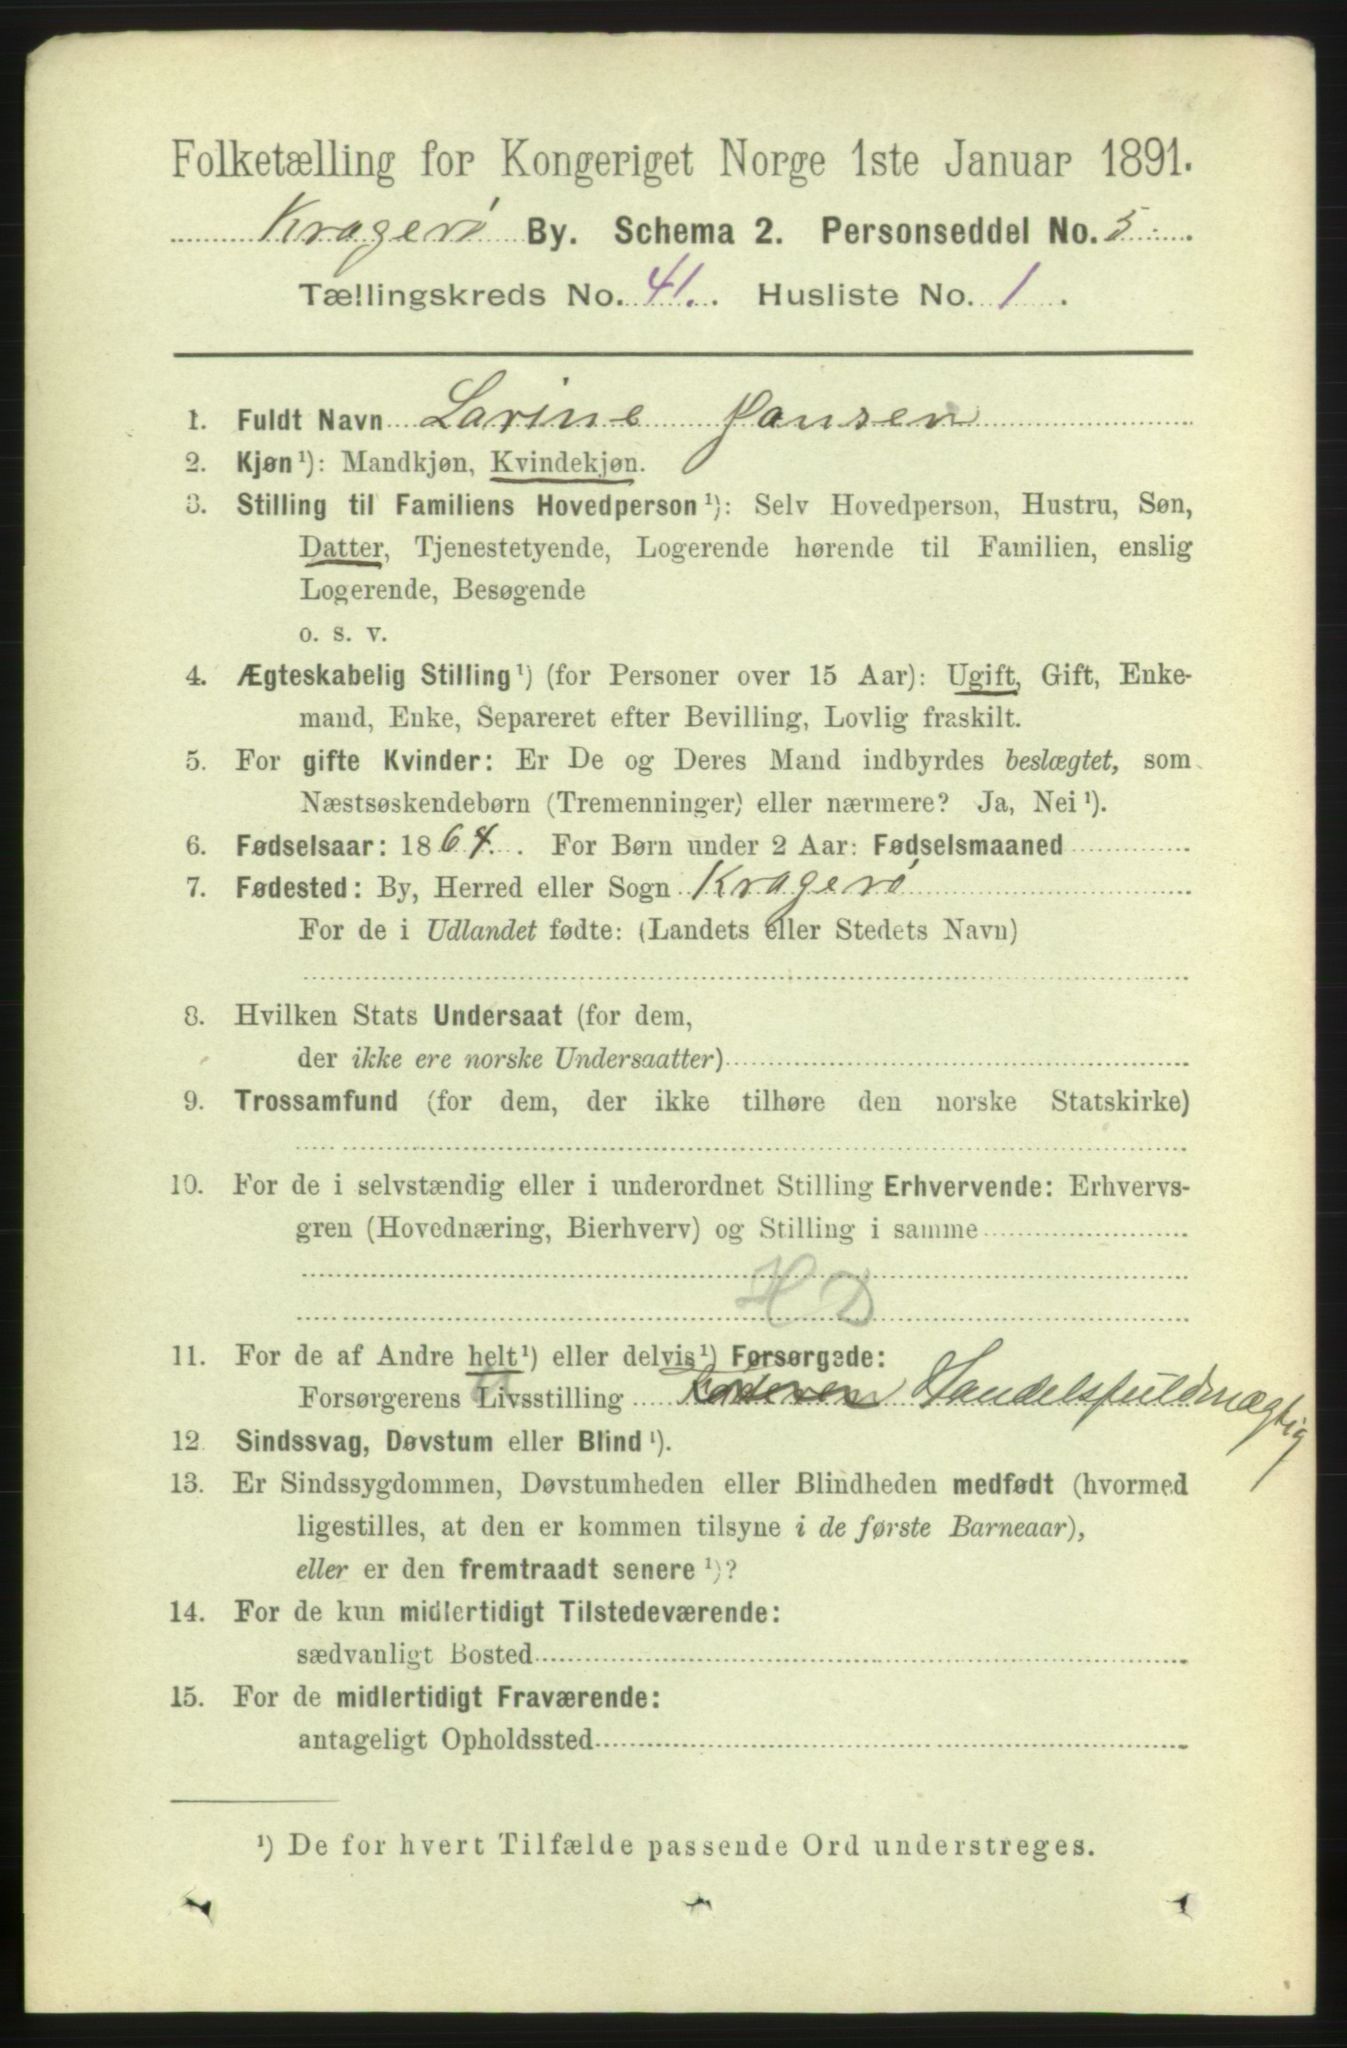 Folketælling for Kongeriget Norge 1ste Januar 1891.
Kragerø By. Schema 2. Personseddel No. 5
Tællingskreds No. 41. Husliste No. 1.
1. Fuldt Navn Larine Hansen
2. Kjøn¹): Mandkjøn, Kvindekjøn.
3. Stilling til Familiens Hovedperson¹): Selv Hovedperson, Hustru, Søn,
Datter, Tjenestetyende, Logerende hørende til Familien, enslig
Logerende, Besøgende
o. s. v.
4. Ægteskabelig Stilling¹) (for Personer over 15 Aar): Ugift, Gift, Enke-
mand, Enke, Separeret efter Bevilling, Lovlig fraskilt.
5. For gifte Kvinder: Er De og Deres Mand indbyrdes beslægtet, som
Næstsøskendebørn (Tremenninger) eller nærmere? Ja, Nei¹).
6. Fødselsaar: 1864. For Børn under 2 Aar: Fødselsmaaned
7. Fødested: By, Herred eller Sogn Kragerø
For de i Udlandet fødte: (Landets eller Stedets Navn)
8. Hvilken Stats Undersaat (for dem,
der ikke ere norske Undersaatter)
9. Trossamfund (for dem, der ikke tilhøre den norske Statskirke)
10. For de i selvstændig eller i underordnet Stilling Erhvervende: Erhvervs-
gren (Hovednæring, Bierhverv) og Stilling i samme
H D
11. For de af Andre helt¹) eller delvis¹) Forsørgede:
Forsørgerens Livsstilling Handelsfuldmægtig
12 Sindssvag, Døvstum eller Blind¹).
13. Er Sindssygdommen, Døvstumheden eller Blindheden medfødt (hvormed
ligestilles, at den er kommen tilsyne i de første Barneaar),
eller er den fremtraadt senere¹)?
14. For de kun midlertidigt Tilstedeværende:
sædvanligt Bosted
15. For de midlertidigt Fraværende:
antageligt Opholdssted
¹) De for hvert Tilfælde passende Ord understreges.